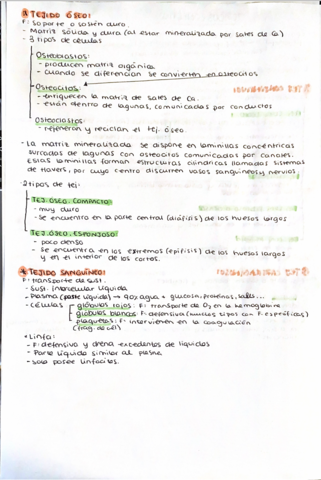 TEJIDO ÓSEO:
F: soporte o sostén duro.
- Matriz sólida y dura (al estar mineralizada por sales de Ca)
- 3 tipos de células
Osteoblastos:
- producen matriz orgánica
- cuando se diferencian se convierten en osteocitos
Osteocitos:
- enriquecen la matriz de sales de Ca.
- están dentro de lagunas, comunicadas por conductos
Osteoclastos:
- regeneran y reciclan el tej. óseo.
- La matriz mineralizada se dispone en laminillas concéntricas
surcadas de lagunas con osteocitos comunicados por canales.
Estas laminillas forman estructuras cilíndricas llamadas sistemas
de Havers, por cuyo centro discurren vasos sanguíneos y nervios.
2 tipos de tej:
TEJ. ÓSEO COMPACTO:
- muy duro
- se encuentra en la parte central (diáfisis) de los huesos largos
TEJ. ÓSEO ESPONJOSO:
- poco denso
- Se encuentra en los extremos (epífisis) de los huesos largos
y en el interior de los cortos.
TEJIDO SANGUÍNEO:
F: transporte de sust.
- Sust. intercelular líquida
- Plasma (parte líquida) → 90% agua + glucosa, proteínas, sales...
- Células
glóbulos rojos: F: transporte de O2 en la hemoglobina
glóbulos blancos: F: defensiva (muchos tipos con F. específicas)
plaquetas: F: intervienen en la coagulación
(frag. de cél)
Linfa:
- F: defensiva y drena excedentes de líquidos
- Parte líquida similar al plasma
- solo posee linfocitos.